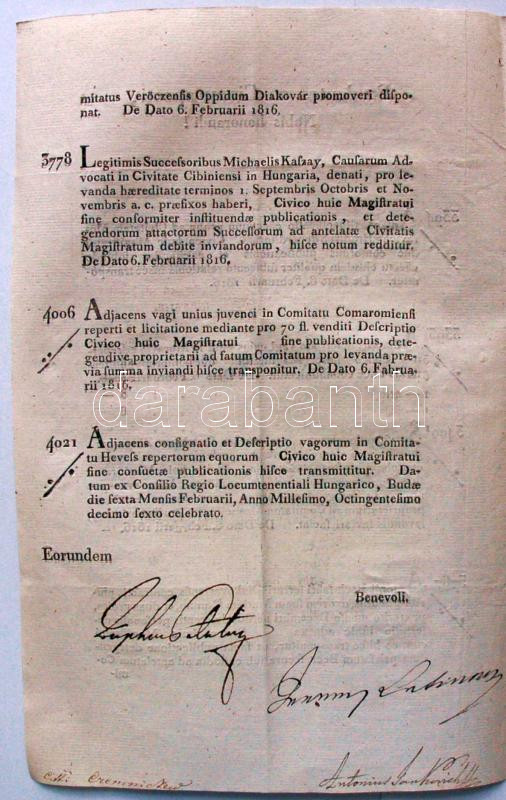 mitatus Veröczensis Oppidum Diakovár promoveri dispo-
nat. De Dato 6. Februarii 1816.
3778 Legitimis Successoribus Michaelis Kaszay, Causarum Ad-
vocati in Civitate Cibiniensi in Hungaria, denati, pro le-
vanda hæreditate terminos 1. Septembris Octobris et No-
vembris a. c. præfixos haberi, Civico huic Magistratui
fine conformiter instituendæ publicationis, et dete-
gendorum attactorum Successorum ad antelatæ Civitatis
Magistratum debite inviandorum, hisce notum redditur.
De Dato 6. Februarii 1816.
4006 Adjacens vagi unius juvenci in Comitatu Comaromiensi
reperti et licitatione mediante pro 70 fl. venditi Descriptio
Civico huic Magistratui fine publicationis, dete-
gendive proprietarii ad fatum Comitatum pro levanda præ-
via summa inviandi hisce transponitur. De Dato 6. Februa-
rii 1816.
darabanth
4021 Adjacens consignatio et Descriptio vagorum in Comita-
tu Hevess repertorum equorum Civico huic Magistratui
fine consuetæ publicationis hisce transmittitur. Da-
tum ex Consilio Regio Locumtenentiali Hungarico, Budæ
die sexta Mensis Februarii, Anno Millesimo, Octingentesimo
decimo sexto celebrato.
Eorundem
Benevoli.
Antonius